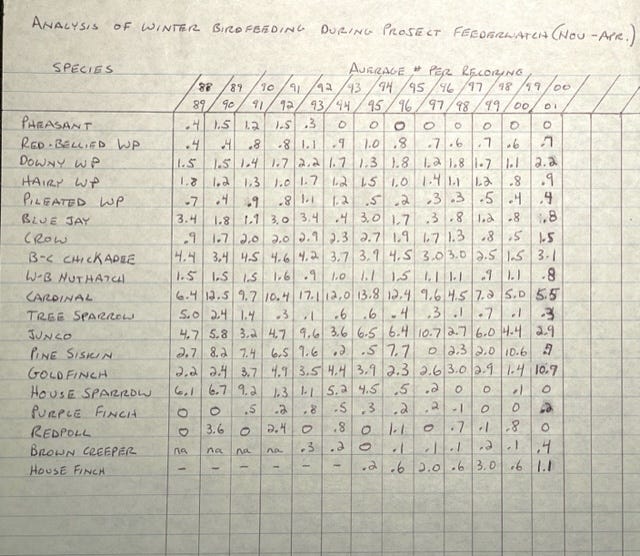 ANALYSIS OF WINTER BIRDFEEDING DURING PROJECT FEEDERWATCH (NOV-APR.)
SPECIES AVERAGE # PER RECORING
88/89 89/90 90/91 91/92 92/93 93/94 94/95 95/96 96/97 97/98 98/99 99/00 00/01
PHEASANT .4 1.5 1.2 1.5 .3 0 0 0 0 0 0 0 0
RED-BELLIED WP .4 .4 .8 .8 1.1 .9 1.0 .8 .7 .6 .7 .6 .7
DOWNY WP 1.5 1.5 1.4 1.7 2.2 1.7 1.3 1.8 1.2 1.8 1.7 1.1 2.2
HAIRY WP 1.8 1.2 1.3 1.0 1.7 1.2 1.5 1.0 1.4 1.1 1.2 .8 .9
PILEATED WP .7 .4 .9 .8 1.1 1.2 .5 .2 .3 .3 .5 .4 .4
BLUE JAY 3.4 1.8 1.9 3.0 3.4 .4 3.0 1.7 .3 .8 1.2 .8 .8
CROW .9 1.7 2.0 2.0 2.9 2.3 2.7 1.9 1.7 1.3 .8 .5 1.5
B-C CHICKADEE 4.4 3.4 4.5 4.6 4.2 3.7 3.9 4.5 3.0 3.0 2.5 1.5 3.1
W-B NUTHATCH 1.5 1.5 1.5 1.6 .9 1.0 1.1 1.5 1.1 1.1 .9 1.1 .8
CARDINAL 6.4 12.5 9.7 10.4 17.1 12.0 13.8 12.4 9.6 4.5 7.2 5.0 5.5
TREE SPARROW 5.0 2.4 1.4 .3 .1 .6 .6 .4 .3 .1 .7 .1 .3
JUNCO 4.7 5.8 3.2 4.7 9.6 3.6 6.5 6.4 10.7 2.7 6.0 4.4 2.9
PINE SISKIN 2.7 8.2 7.4 6.5 9.6 .2 .5 7.7 0 2.3 2.0 10.6
GOLDFINCH 2.2 2.4 3.7 4.9 3.5 4.4 3.9 2.3 2.6 3.0 2.9 1.4 10.9
HOUSE SPARROW 6.1 6.7 9.2 1.3 1.1 5.2 4.5 .5 .2 0 0 .1 0
PURPLE FINCH 0 0 .5 .2 .8 .5 .3 .2 .2 .1 0 0 .2
REDPOLL 0 3.6 0 2.4 0 .8 0 1.1 0 .7 .1 .8 0
BROWN CREEPER na na na na .3 .2 0 .1 .1 .1 .2 .1 .4
HOUSE FINCH - - - - - - .2 .6 2.0 .6 3.0 .6 1.1